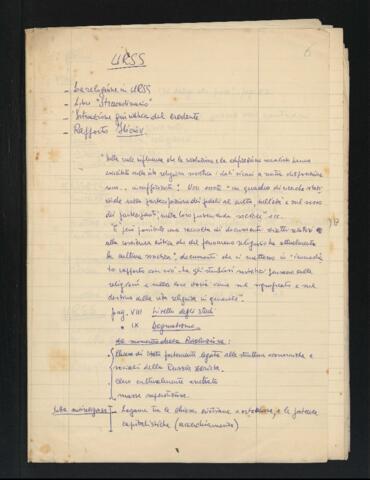 6
URSS
- La religione in URSS
- Libri "straordinario"
- Situazione giuridica del credente
- Rapporto Iliciov
"Sulla reale influenza che la rivoluzione e la edificazione socialista hanno
esercitato sulla vita religiosa sovietica i dati vicini a nostra disposizione
sono.. insufficienti". Non esiste "un quadro di ricerche stati-
stiche sulla partecipazione dei fedeli al culto, sull'età e sul sesso
dei partecipanti, sulla loro provenienza sociale" ecc.
È però possibile una raccolta di documenti diretti relativi
alla coscienza critica che del fenomeno religioso ha attualmente
la cultura sovietica", documenti che ci mettono in "immediato
rapporto con ciò che gli studiosi sovietici pensano sulla
religione e sulla loro varia sul significato e sul
destino della vita religiosa in generale".
pag. VIII Livello degli studi
" IX Dogmatismo
Al momento della Rivoluzione:
Chiesa di Stato fortemente legata alle strutture economiche e
sociali della Russia zarista.
clero culturalmente arretrato
masse superstiziose.
lotta antireligiosa - Legame tra le chiese cristiane e ortodosse, e le potenze
capitalistiche (accerchiamento)